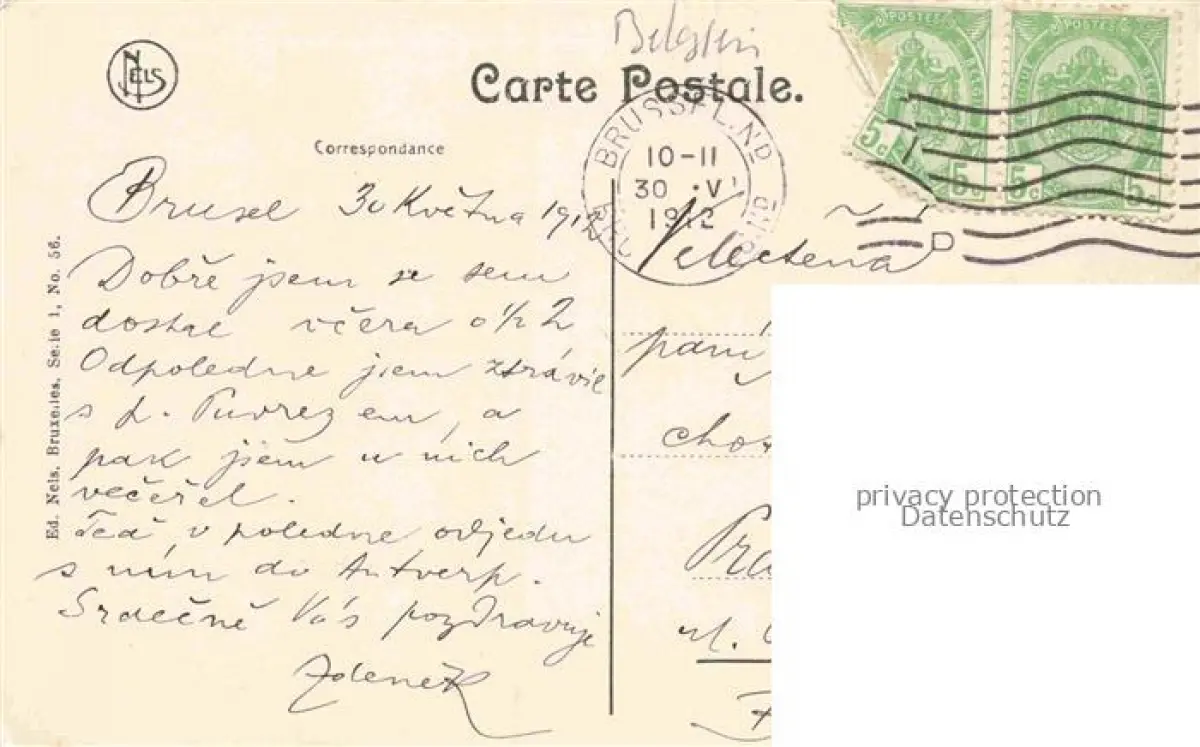 NELS
Carte Postale.
Correspondance
Ed. Nels, Bruxelles, Serie 1, No. 56.
POSTES
5c 5c
POSTES
5c 5c
BRUSSEL N.D
10-11
30 V
1912
Brusel 30 Května 1912
Dobře jsem se sem
dostal včera o ½ 2
Odpoledne jsem ztrávil
s p. em, a
pak jsem u nich
večeřel.
Teď v poledne odjedu
s ním do Antverp.
Srdečně Vás pozdravuje
Zdeněk
Velectěná
paní
Pra
ul.
privacy protection
Datenschutz